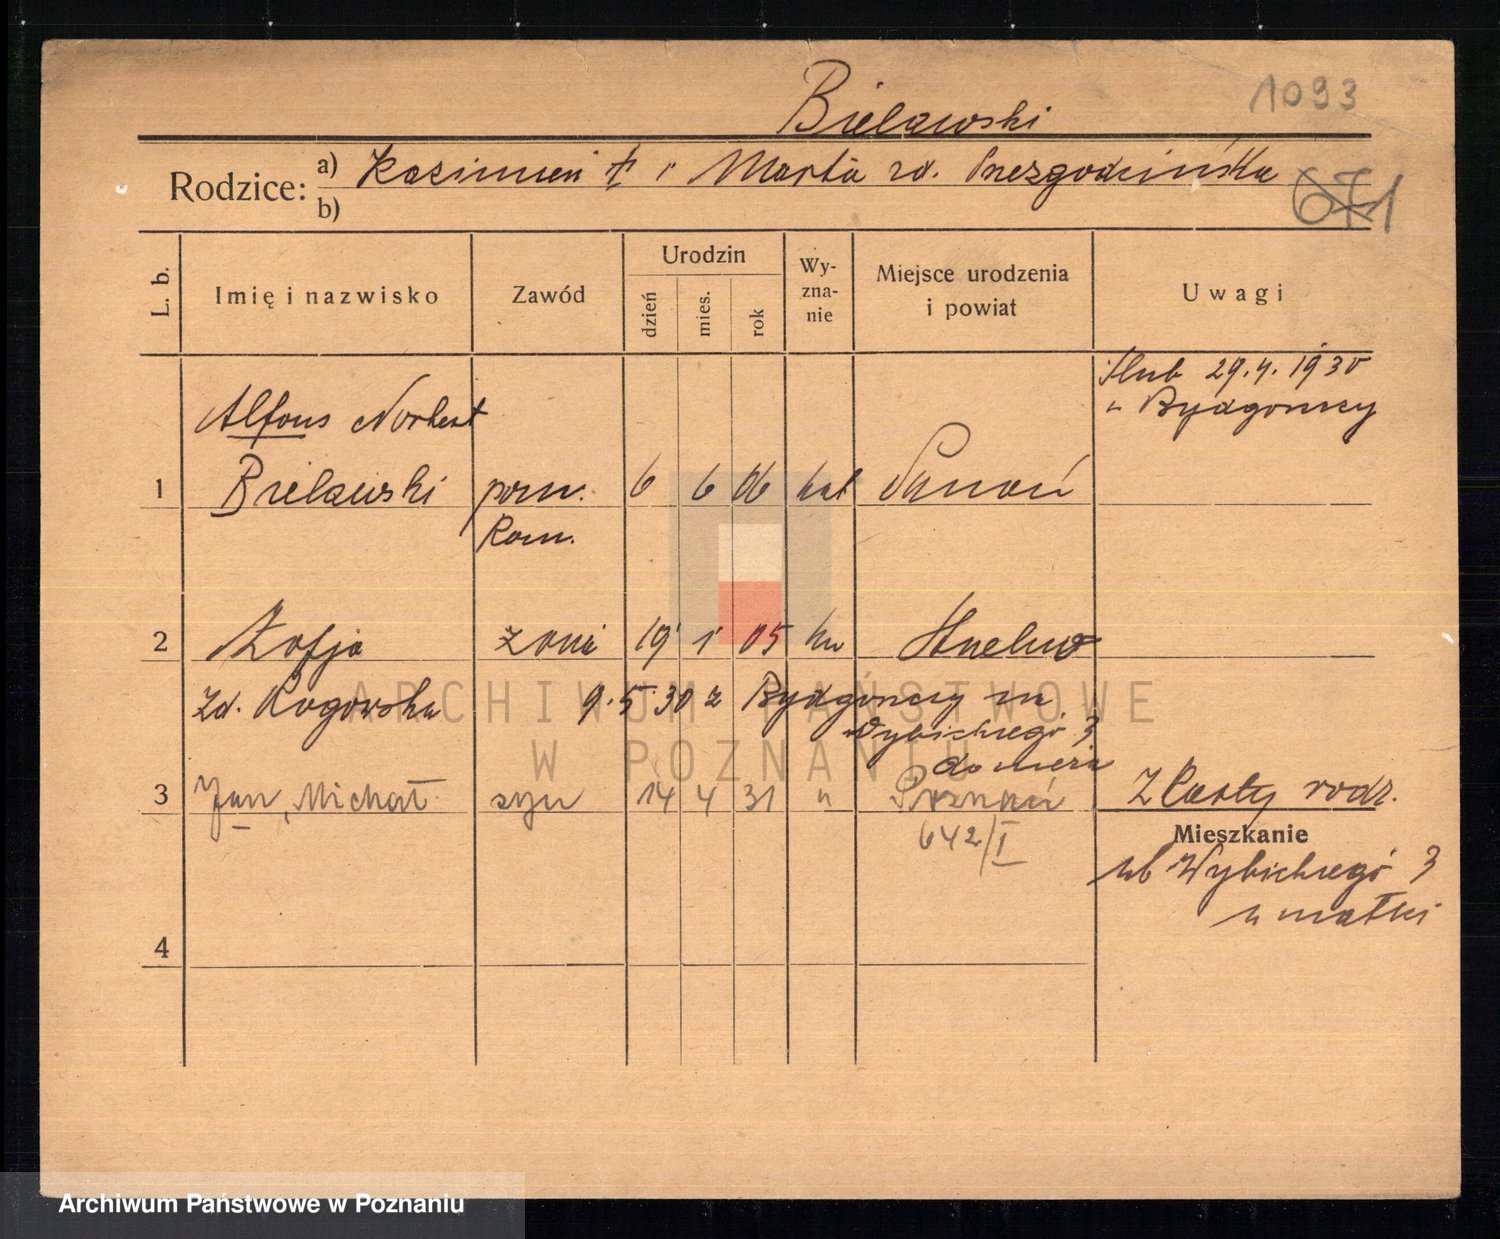 1093
Bielawski
Rodzice: a) Kazimierz † i Marta zd. Niezgodzińska
b)
671
L. b.
Imię i nazwisko
Zawód
Urodzin
dzień
mies.
rok
Wy-
zna-
nie
Miejsce urodzenia
i powiat
Uwagi
Ślub 29.4.1930
w Bydgoszczy
Alfons Norbert
1 Bielawski pom. 6 6 06 kat Poznań
kom.
2 Zofja żona 19 1 05 kat
zd. Rogowska 9.5.30 z Bydgoszczy na
Wybickiego 3
do męża
3 Jan, Michał syn 14 4 31 " Poznań
Z karty rodz.
642/I
Mieszkanie
Wybickiego 3
u matki
4
ARCHIWUM PAŃSTWOWE
W POZNANIU
Archiwum Państwowe w Poznaniu